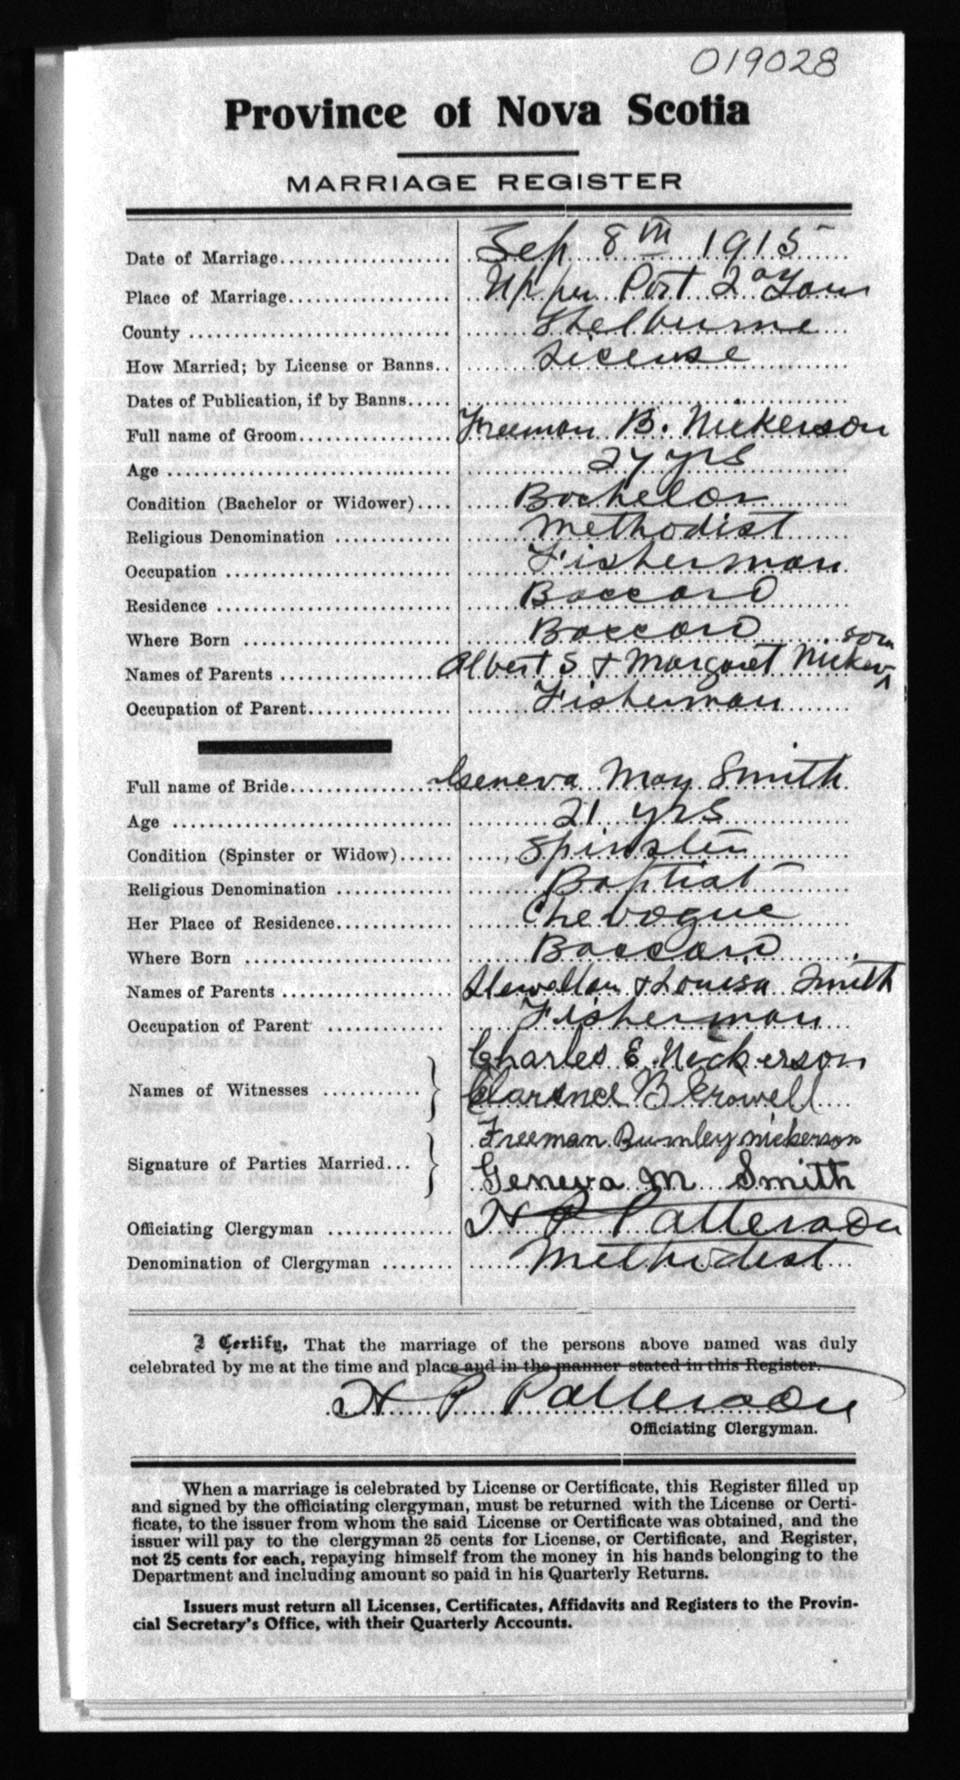 019028
Province of Nova Scotia
MARRIAGE REGISTER
Date of Marriage.................... Sep 8th 1915
Place of Marriage.................. Upper Port La Tour
County ............................ Shelburne
How Married; by License or Banns.. License
Dates of Publication, if by Banns.....
Full name of Groom................. Freeman B. Nickerson
Age .............................. 27 yrs
Condition (Bachelor or Widower).... Bachelor
Religious Denomination ............ Methodist
Occupation ........................ Fisherman
Residence ......................... Baccaro
Where Born ....................... Baccaro
Names of Parents .................. Albert S & Margaret Nickerson
Occupation of Parent............... Fisherman
Full name of Bride................. Geneva May Smith
Age .............................. 21 yrs
Condition (Spinster or Widow)...... Spinster
Religious Denomination ............ Baptist
Her Place of Residence............. Chevogue
Where Born ....................... Baccaro
Names of Parents .................. Llewellan & Louisa Smith
Occupation of Parent .............. Fisherman
Charles E. Nickerson
Names of Witnesses ........... } Clarence B Crowell
Freeman Burnley Nickerson
Signature of Parties Married... } Geneva M Smith
Officiating Clergyman ............. H P Patterson
Denomination of Clergyman ........ Methodist
I Certify, That the marriage of the persons above named was duly
celebrated by me at the time and place and in the manner stated in this Register.
H P Patterson
Officiating Clergyman.
When a marriage is celebrated by License or Certificate, this Register filled up
and signed by the officiating clergyman, must be returned with the License or Certi-
ficate, to the issuer from whom the said License or Certificate was obtained, and the
issuer will pay to the clergyman 25 cents for License, or Certificate, and Register,
not 25 cents for each, repaying himself from the money in his hands belonging to the
Department and including amount so paid in his Quarterly Returns.
Issuers must return all Licenses, Certificates, Affidavits and Registers to the Provin-
cial Secretary's Office, with their Quarterly Accounts.